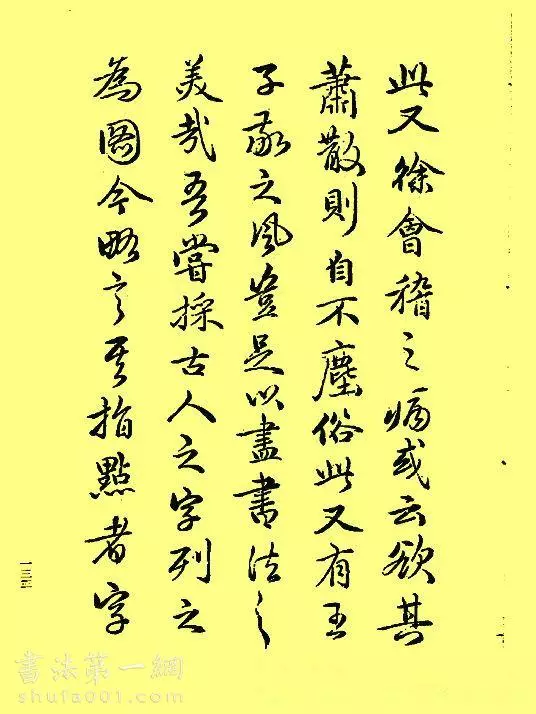 此又徐會稽之病或云欲其
蕭散則自不塵俗此又有王
子敬之風豈足以盡書法之
美哉吾嘗採古人之字列之
為圖今略言其指點者字
一三三
書法第一網
shufa001.com